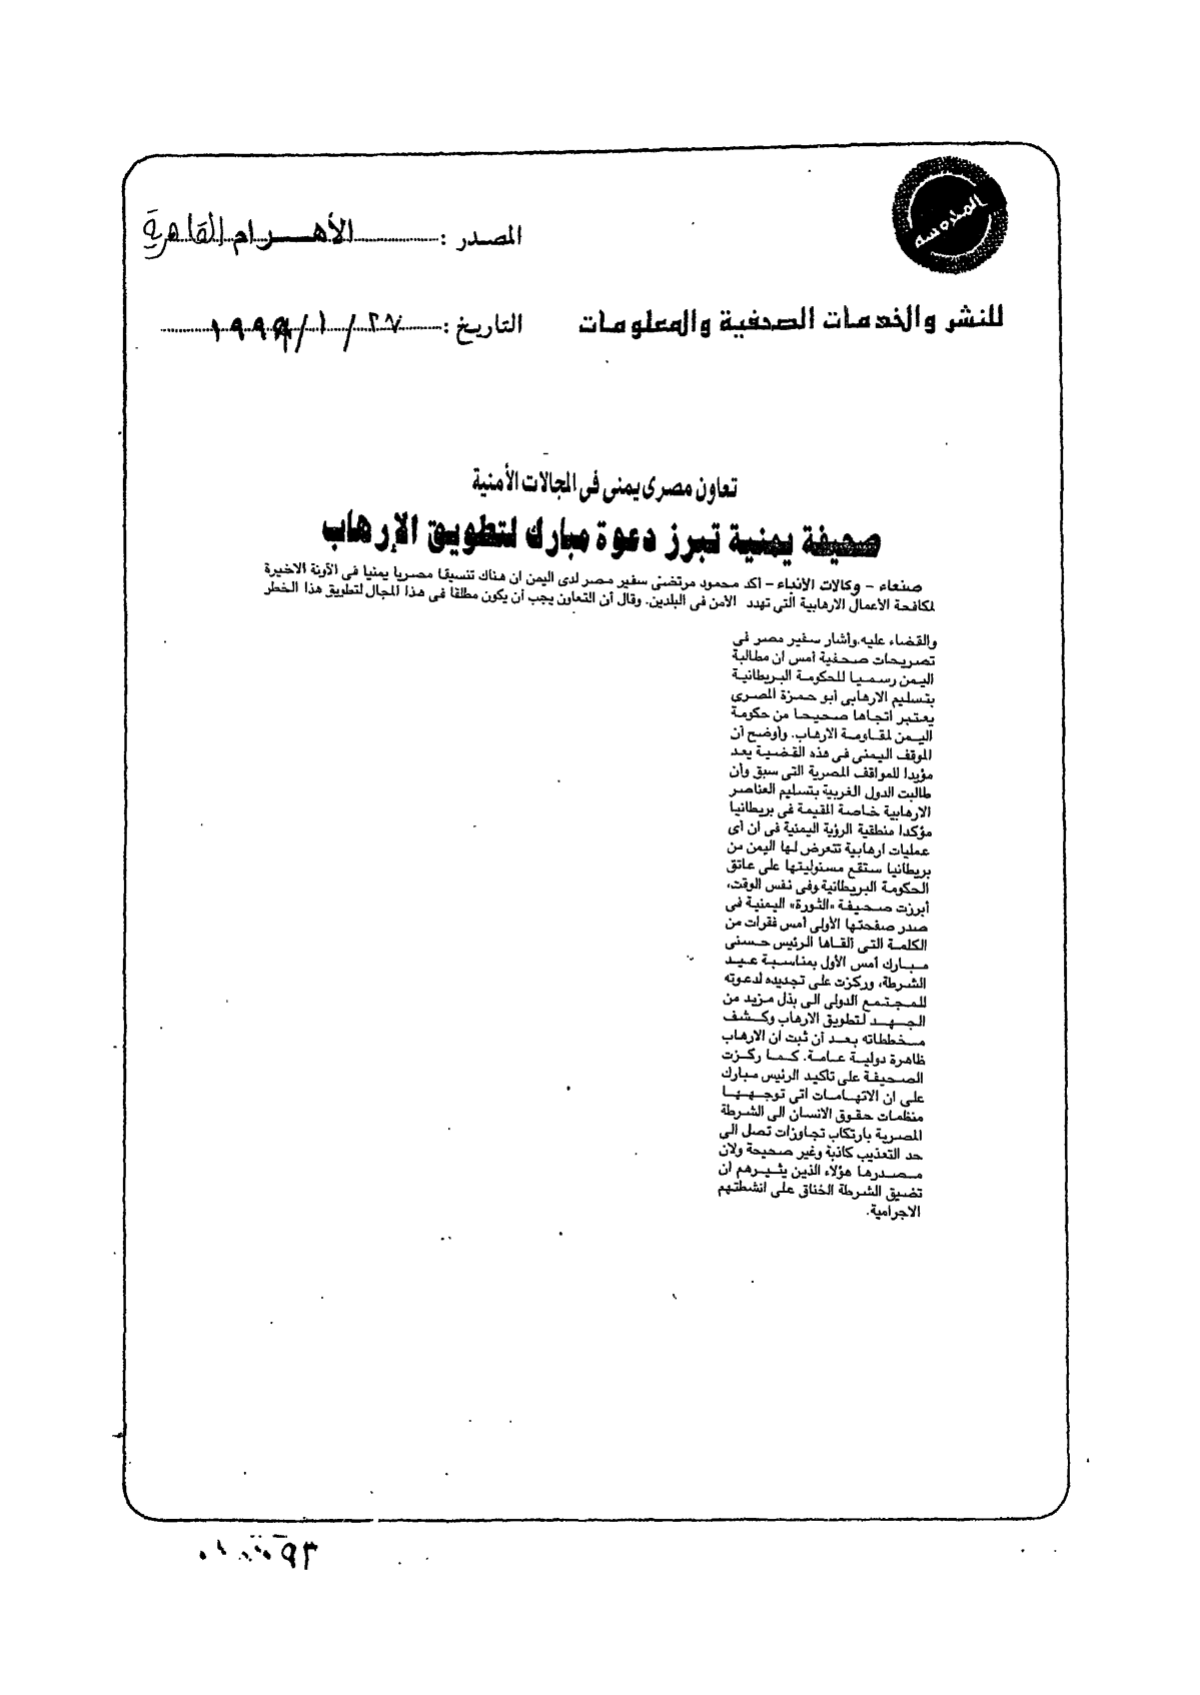 المدوسه
المصدر : الأهرام القاهرية
للنشر والخدمات الصحفية والمعلومات
التاريخ : ٢٧ / ١ / ١٩٩٩
تعاون مصرى يمنى فى المجالات الأمنية
صحيفة يمنية تبرز دعوة مبارك لتطويق الإرهاب
صنعاء - وكالات الأنباء - أكد محمود مرتضى سفير مصر لدى اليمن ان هناك تنسيقا مصريا يمنيا فى الآونة الاخيرة
لمكافحة الأعمال الارهابية التى تهدد الأمن فى البلدين. وقال أن التعاون يجب أن يكون مطلقا فى هذا المجال لتطويق هذا الخطر
والقضاء عليه.وأشار سفير مصر فى
تصريحات صحفية أمس ان مطالبة
اليمن رسميا للحكومة البريطانية
بتسليم الارهابى أبو حمزة المصرى
يعتبر اتجاها صحيحا من حكومة
اليمن لمقاومة الارهاب. وأوضح أن
الموقف اليمنى فى هذه القضية يعد
مؤيدا للمواقف المصرية التى سبق وأن
طالبت الدول الغربية بتسليم العناصر
الارهابية خاصة المقيمة فى بريطانيا
مؤكدا منطقية الرؤية اليمنية فى ان أى
عمليات ارهابية تتعرض لها اليمن من
بريطانيا ستقع مسئوليتها على عاتق
الحكومة البريطانية وفى نفس الوقت،
أبرزت صحيفة «الثورة» اليمنية فى
صدر صفحتها الأولى أمس فقرات من
الكلمة التى ألقاها الرئيس حسنى
مبارك أمس الأول بمناسبة عيد
الشرطة، وركزت على تجديده لدعوته
للمجتمع الدولى الى بذل مزيد من
الجهد لتطويق الارهاب وكشف
مخططاته بعد أن ثبت ان الارهاب
ظاهرة دولية عامة. كما ركزت
الصحيفة على تأكيد الرئيس مبارك
على ان الاتهامات اتى توجهها
منظمات حقوق الانسان الى الشرطة
المصرية بارتكاب تجاوزات تصل الى
حد التعذيب كاذبة وغير صحيحة ولان
مصدرها هؤلاء الذين يثيرهم ان
تضيق الشرطة الخناق على انشطتهم
الاجرامية.